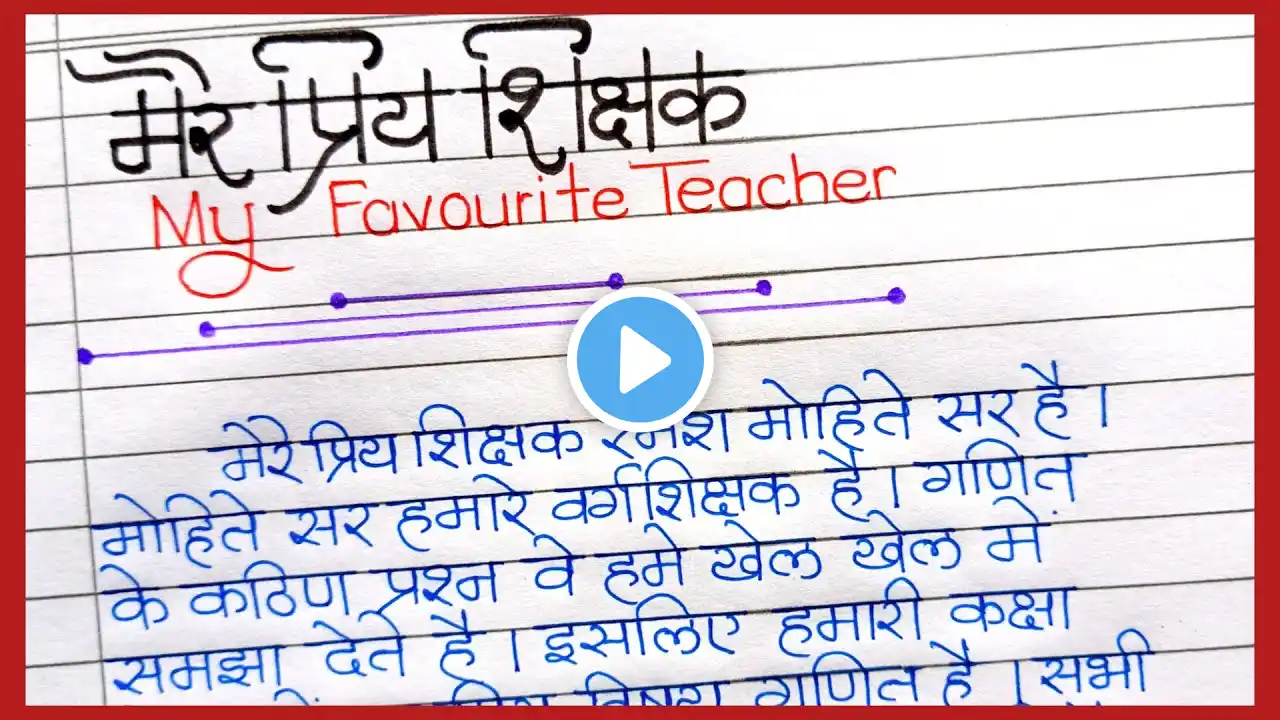 मेरे प्रिय शिक्षक
My Favourite Teacher
मेरे प्रिय शिक्षक मोहिते सर है।
मोहिते सर हमारे वर्गशिक्षक है। गणित
के कठिण प्रश्न वे हमे खेल खेल में
समझा देते है। इसलिए हमारी कक्षा
विषय गणित है। सभी